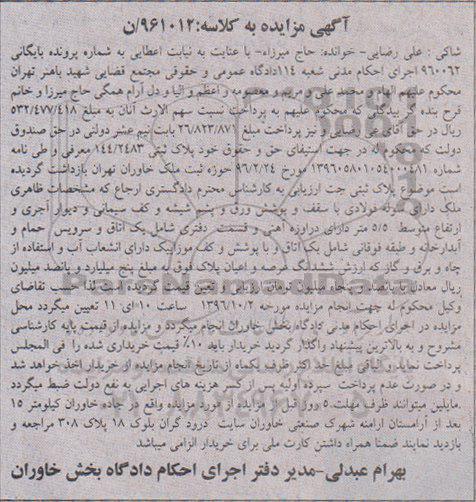 آگهی مزایده به کلاسه:۹۶۱۰۱۲/ن
شاکی : علی رضایی- خوانده: حاج میرزاه- با عنایت به نیابت اعطایی به شماره پرونده بایگانی
۹۶۰۰۶۲ اجرای احکام مدنی شعبه ۱۱۴دادگاه عمومی و حقوقی مجتمع قضایی شهید باهنر تهران
محکوم علیهم الهام و محمد علی و مریم و معصومه و اعظم و الیا و دل آرام همگی حاج میرزا و خانم
قرح بنده گر پیدایش که محکوم علیهم به پرداخت نسبت سهم الارث آنان به مبلغ ۵۳۲/۴۷۷/۴۱۸
ریال در حق آقای علی رضایی و نیز پرداخت مبلغ ۲۶/۸۲۳/۸۷۱ بابت نیم عشر دولتی در حق صندوق
دولت که محکوم له در جهت استیفای حق و حقوق خود پلاک ثبتی ۱۴۴/۲۴۸۳ معرفی و طی نامه
شماره ۱۳۹۶۰۵۸۰۱۰۵۴۰۰۰۴۸۱ مورخ ۹۶/۲/۲۴ حوزه ثبت ملک خاوران تهران بازداشت گردیده
است موضوع پلاک ثبتی جت ارزیابی به کارشناس محترم دادگستری ارجاع که مشخصات ظاهری
ملک دارای سوله فولادی با سقف و پوشش ورق و پشم شیشه و کف سیمانی و دیوار آجری و
ارتفاع متوسط ۵/۵ متر دارای دروازه آهنی و قسمت دفتری شامل یک اتاق و سرویس حمام و
آبدارخانه و طبقه فوقانی شامل یک اتاق و با پوشش و کف موزائیک دارای انشعاب آب و استفاده از
چاه و برق و گاز که ارزش ششدانگ عرصه و اعیان پلاک فوق به مبلغ پنج میلیارد و پانصد میلیون
ریال معادل پانصد و پنجاه میلیون تومان ارزیابی و تعیین قیمت گردیده است لذا حسب تقاضای
وکیل محکوم له جهت انجام مزایده مورخه ۱۳۹۶/۱۰/۲ ساعت ۱۰ الی ۱۱ تعیین میگردد محل
مزایده در اجرای احکام مدنی دادگاه بخش خاوران انجام میگردد و مزایده از قیمت پایه کارشناسی
مشروح و به بالاترین پیشنهاد واگذار گردید خریدار باید ۱۰٪ قیمت خریداری شده را فی المجلس
پرداخت نماید و الباقی مبلغ حد اکثر ظرف یکماه از تاریخ انجام مزایده از خریدار اخذ خواهد شد
و در صورت عدم پرداخت سپرده اولیه پس از کسر هزینه های اجرایی به نفع دولت ضبط میگردد
.مایلین میتوانند ظرف مهلت ۵ روز قبل از مزایده از مورد مزایده واقع در جاده خاوران کیلومتر ۱۵
بعد از آرامستان ارامنه شهرک صنعتی خاوران سایت درود گران بلوک ۱۸ پلاک ۳۰۸ مراجعه و
بازدید نمایند ضمنا همراه داشتن کارت ملی برای خریدار الزامی میباشد
بهرام عبدلی-مدیر دفتر اجرای احکام دادگاه بخش خاوران